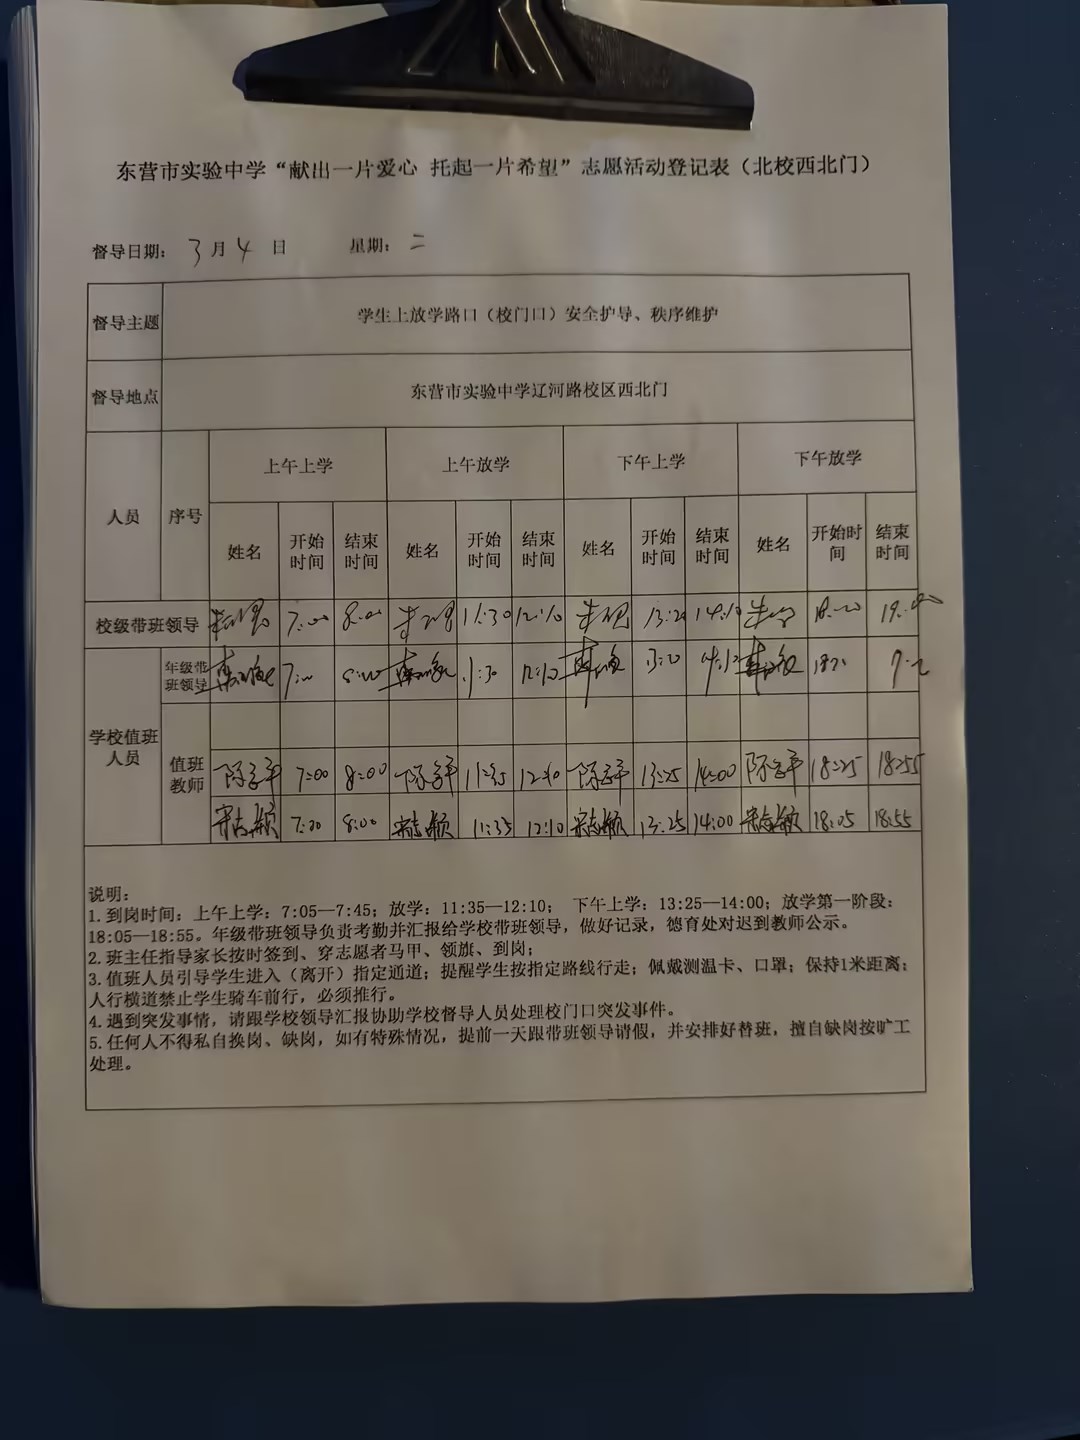 东营市实验中学“献出一片爱心 托起一片希望”志愿活动登记表（北校西北门）
督导日期： 3 月 4 日 星期： 二
督导主题 学生上放学路口（校门口）安全护导、秩序维护
督导地点 东营市实验中学辽河路校区西北门
人员 序号 上午上学 上午放学 下午上学 下午放学
姓名 开始时间 结束时间 姓名 开始时间 结束时间 姓名 开始时间 结束时间 姓名 开始时间 结束时间
校级带班领导 7:00 8:00 11:30 12:10 13:20 14:10 18:20
学校值班人员 年级带班领导 7:00 8:00 12:10
值班教师 7:00 8:00 11:35 12:10 13:25 14:00 18:25 18:55
宋志颖 7:20 8:00 宋志颖 11:35 12:10 宋志颖 13:25 14:00 宋志颖 18:05 18:55
说明：
1.到岗时间：上午上学：7:05—7:45；放学：11:35—12:10； 下午上学：13:25—14:00；放学第一阶段：
18:05—18:55。年级带班领导负责考勤并汇报给学校带班领导，做好记录，德育处对迟到教师公示。
2.班主任指导家长按时签到、穿志愿者马甲、领旗、到岗；
3.值班人员引导学生进入（离开）指定通道；提醒学生按指定路线行走；佩戴测温卡、口罩；保持1米距离；
人行横道禁止学生骑车前行，必须推行。
4.遇到突发事情，请跟学校领导汇报协助学校督导人员处理校门口突发事件。
5.任何人不得私自换岗、缺岗，如有特殊情况，提前一天跟带班领导请假，并安排好替班，擅自缺岗按旷工
处理。